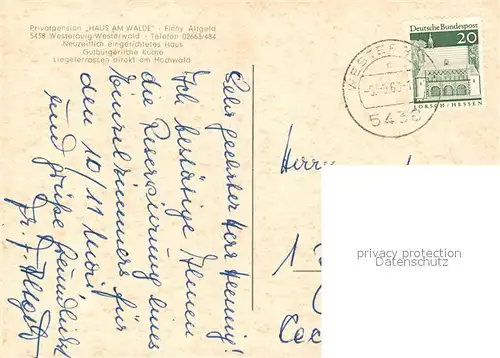 Privatpension „HAUS AM WALDE" - Finny Altgeld
5438 Westerburg/Westerwald - Telefon 02663/484
Neuzeitlich eingerichtetes Haus
Gutbürgerliche Küche
Liegeterrassen direkt am Hochwald
Sehr geehrter Herr Hennig!
Ich bestätige Ihnen
die Reservierung eines
Einzelzimmers für
den 10/11 Mai
und grüße freundlichst
Fr. F. Altgeld
Deutsche Bundespost
20
LORSCH/HESSEN
WESTER
5438
Herrn
1
privacy protection
Datenschutz